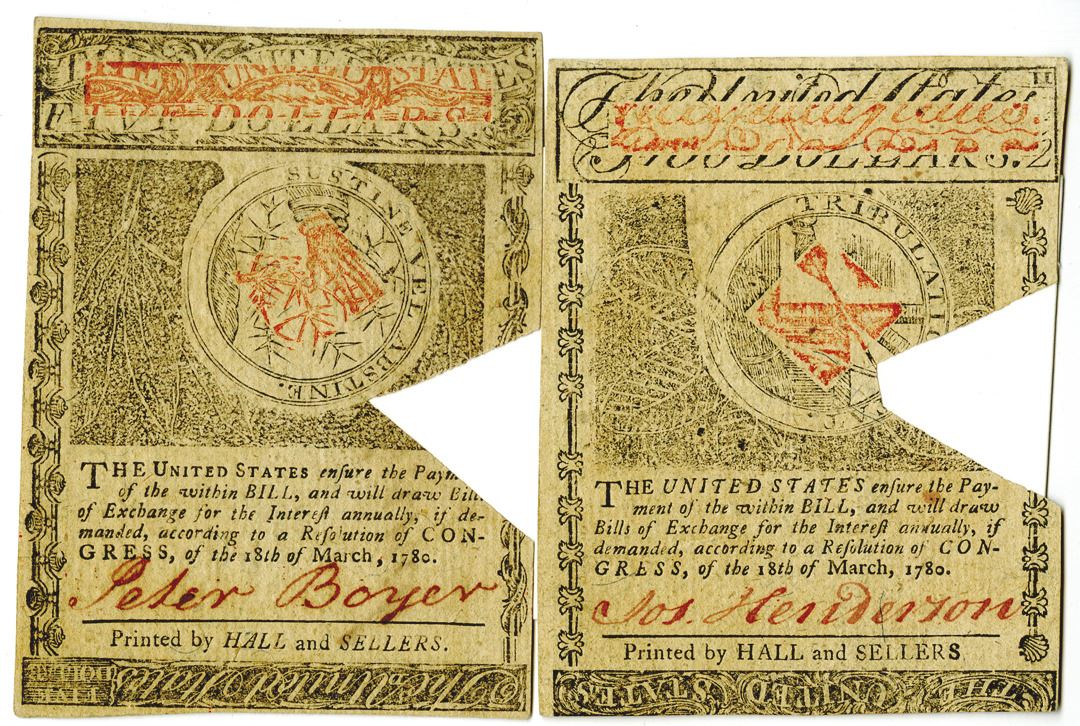 THE UNITED STATES
FIVE DOLLARS.
SUSTINE VEL ABSTINE.
THE UNITED STATES ensure the Paym
of the within BILL, and will draw Bill
of Exchange for the Interest annually, if de-
manded, according to a Resolution of CON-
GRESS, of the 18th of March, 1780.
Peter Boyer
Printed by HALL and SELLERS.
The United States
The United States
Two DOLLARS.
TRIBULATIO
THE UNITED STATES ensure the Pay-
ment of the within BILL, and will draw
Bills of Exchange for the Interest annually, if
demanded, according to a Resolution of CON-
GRESS, of the 18th of March, 1780.
Jos. Henderson
Printed by HALL and SELLERS
THE UNITED STATES